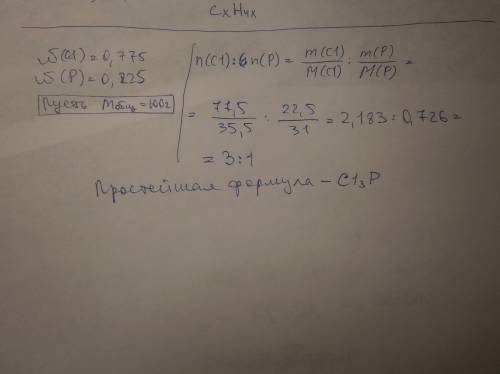 CxH4x
ω(Cl) = 0,775
ω(P) = 0,225
Пусть mобщ = 100г
n(Cl) : n(P) = m(Cl)/M(Cl) : m(P)/M(P) =
= 77,5/35,5 : 22,5/31 = 2,183 : 0,726 =
= 3:1
Простейшая формула – Cl3P